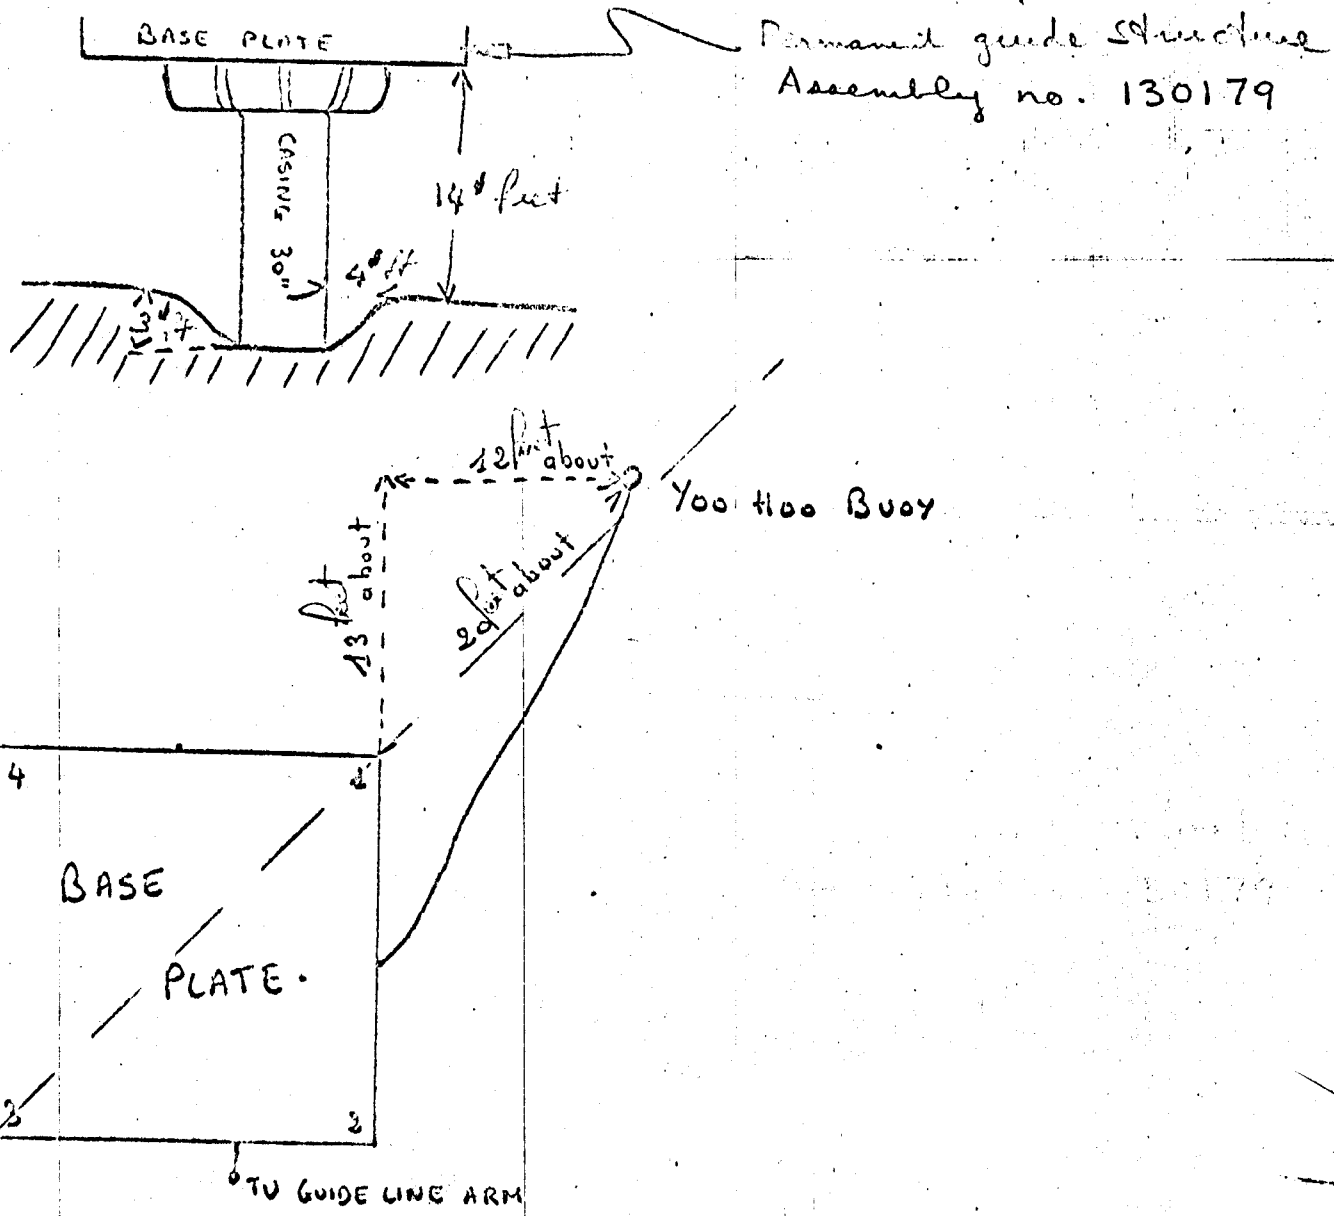 BASE PLATE
Permanent guide structure
Assembly no. 130179
CASING 30"
14' feet
4' ft
3' ft
12 feet about
13 feet about
20 feet about
Yoo Hoo BUOY
4
1
BASE
PLATE.
3
2
TV GUIDE LINE ARM